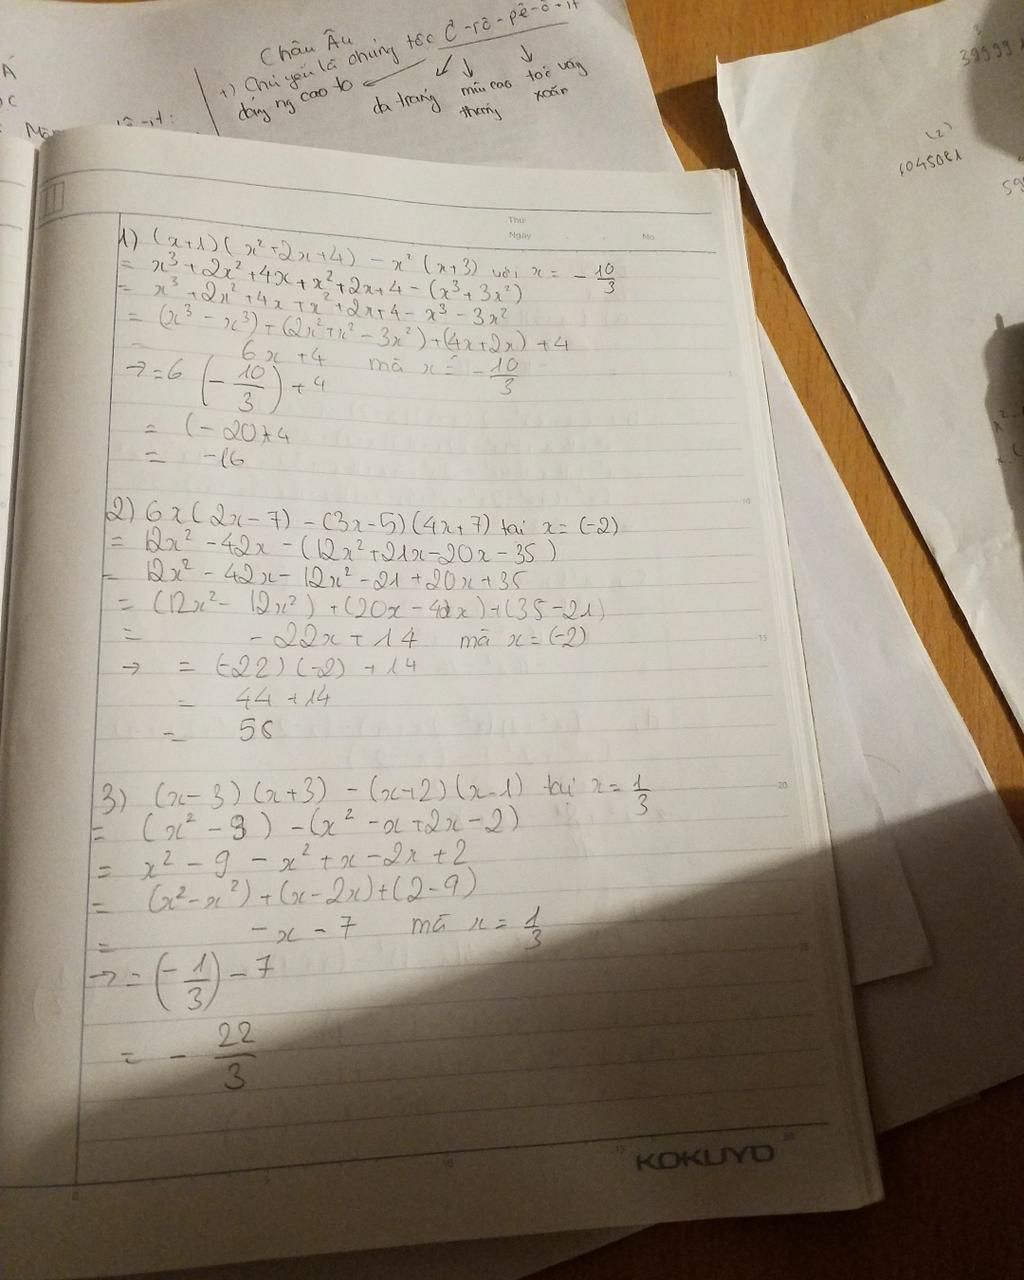 Châu Âu
+) Chủ yếu là chủng tộc Ơ-rô-pê-ô-it
dáng ng cao to
da trắng
mũi cao
thẳng
tóc vàng
xoăn
39999
(2)
Thứ
Ngày
No
1) (x+1)(x²+2x+4) - x²(x+3) với x = -10/3
= x³+2x²+4x+x²+2x+4-(x³+3x²)
= x³+2x²+4x+x²+2x+4-x³-3x²
= (x³-x³)+(2x²+x²-3x²)+(4x+2x)+4
6x+4 mà x = -10/3
→ = 6(-10/3)+4
= (-20)+4
= -16
2) 6x(2x-7)-(3x-5)(4x+7) tại x=(-2)
= 12x²-42x-(12x²+21x-20x-35)
= 12x²-42x-12x²-21+20x+35
= (12x²-12x²)+(20x-42x)+(35-21)
= -22x+14 mà x=(-2)
→ = (-22)(-2)+14
= 44+14
= 58
3) (x-3)(x+3)-(x+2)(x-1) tại x=1/3
= (x²-9)-(x²-x+2x-2)
= x²-9-x²+x-2x+2
= (x²-x²)+(x-2x)+(2-9)
= -x-7 mà x=1/3
→ = (-1/3)-7
= -22/3
KOKUYO